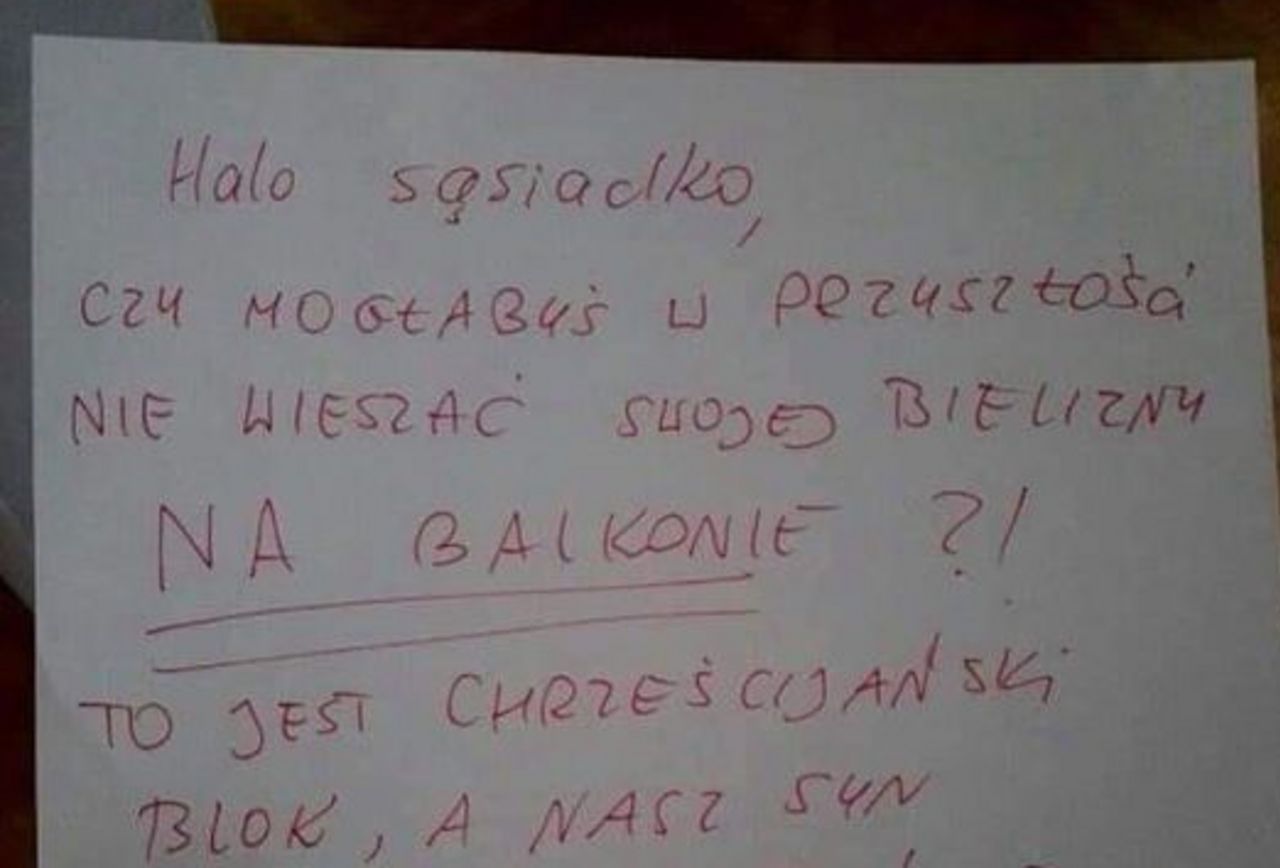 Halo sąsiadko,
CZY MOGŁABYŚ W PRZYSZŁOŚCI
NIE WIESZAĆ SWOJEJ BIELIZNY
NA BALKONIE ?!
TO JEST CHRZEŚCIJAŃSKI
BLOK, A NASZ SYN